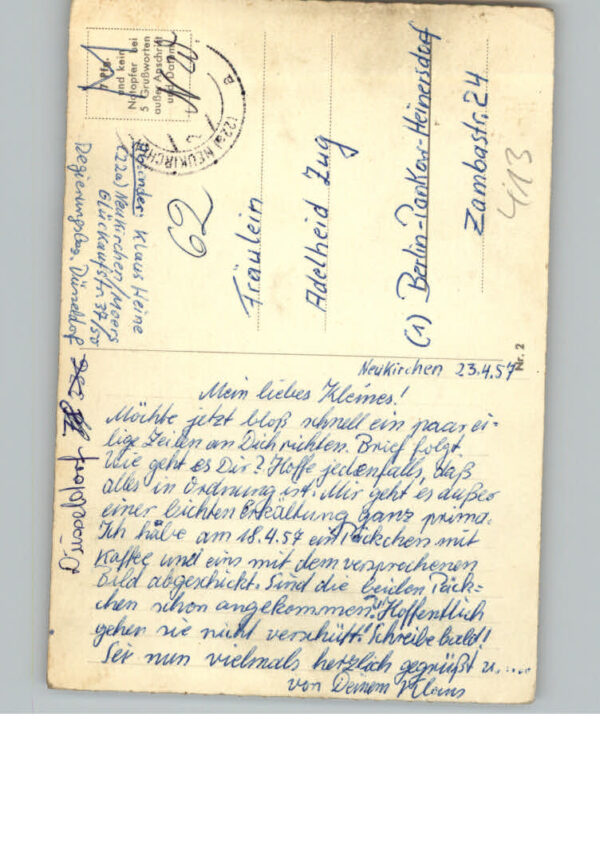 Neukirchen 23.4.57
Mein liebes Kleines!
Möchte jetzt bloß schnell ein paar ei-
lige Zeilen an Dich richten. Brief folgt.
Wie geht es Dir? Hoffe jedenfalls, daß
alles in Ordnung ist. Mir geht es außer
einer leichten Erkältung ganz prima.
Ich habe am 18.4.57 ein Päckchen mit
Kaffee und eins mit dem versprochenen
Bild abgeschickt. Sind die beiden Päck-
chen schon angekommen? Hoffentlich
gehen sie nicht verschütt! Schreibe bald!
Sei nun vielmals herzlich gegrüßt u.....
von Deinem Klaus
Fräulein
Adelheid Zug
(1) Berlin-Pankow-Heinersdorf
Zambastr. 24
413
62
Absender: Klaus Heine
(22a) Neukirchen/Moers
Glückaufstr. 37/
Regierungsbez. Düsseldorf
Düsseldorf
und kein
Notopfer bei
5 Grußworten
außer Anschrift
und Datum
(22a) NEUKIRCHEN
a
Nr. 2